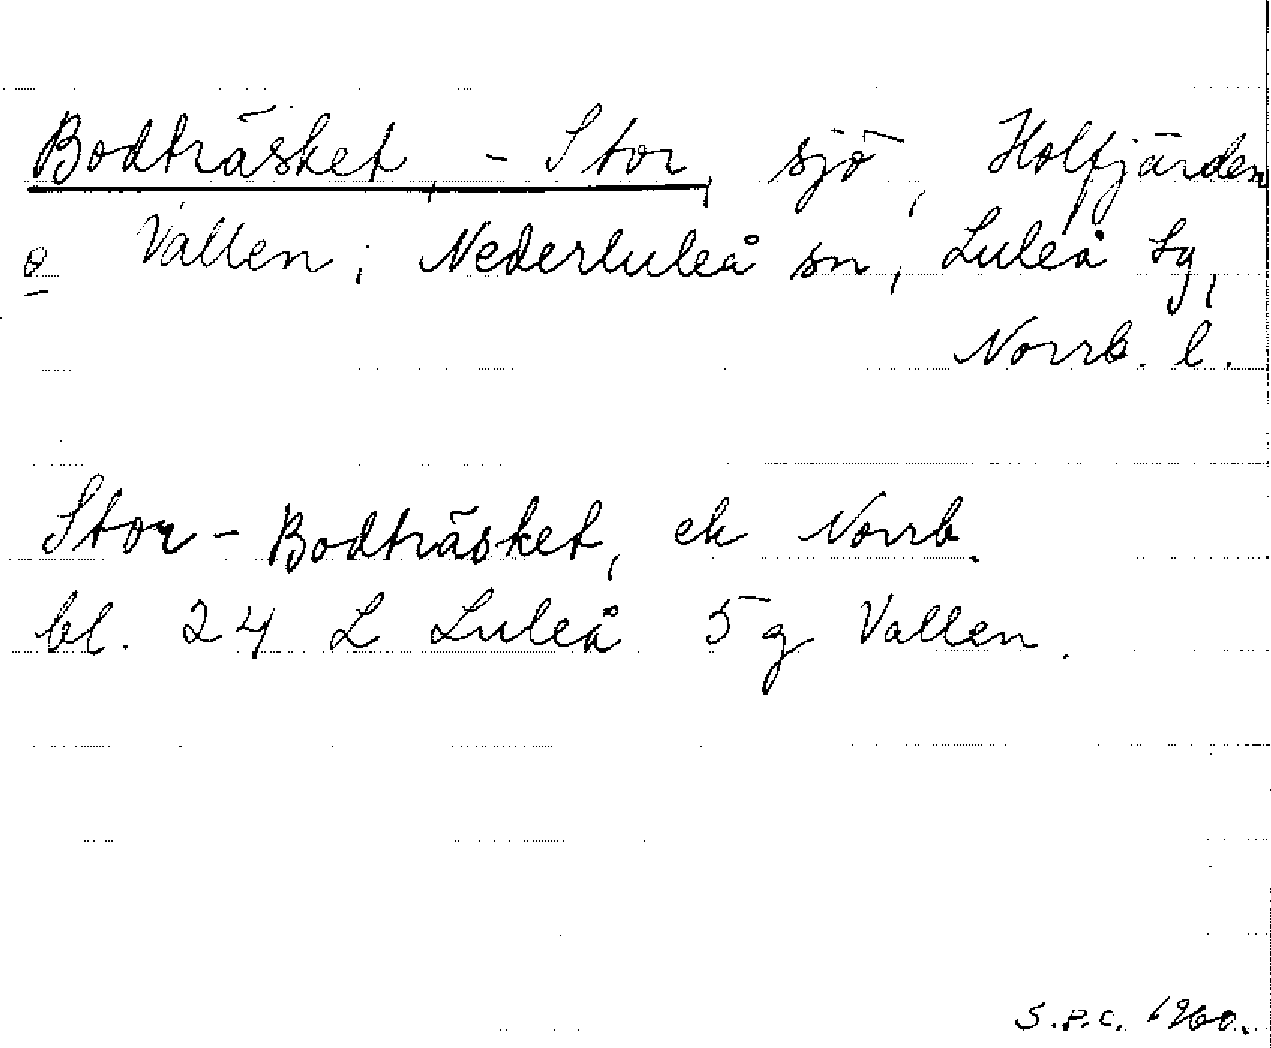 Bodträsket, - Stor, sjö, Holfjärden
o Vallen; Nederluleå sn, Luleå tg,
Norrb. l.
Stor-Bodträsket, ek Norrb.
bl. 24 L Luleå 5g Vallen.
S.P.C. 1960.